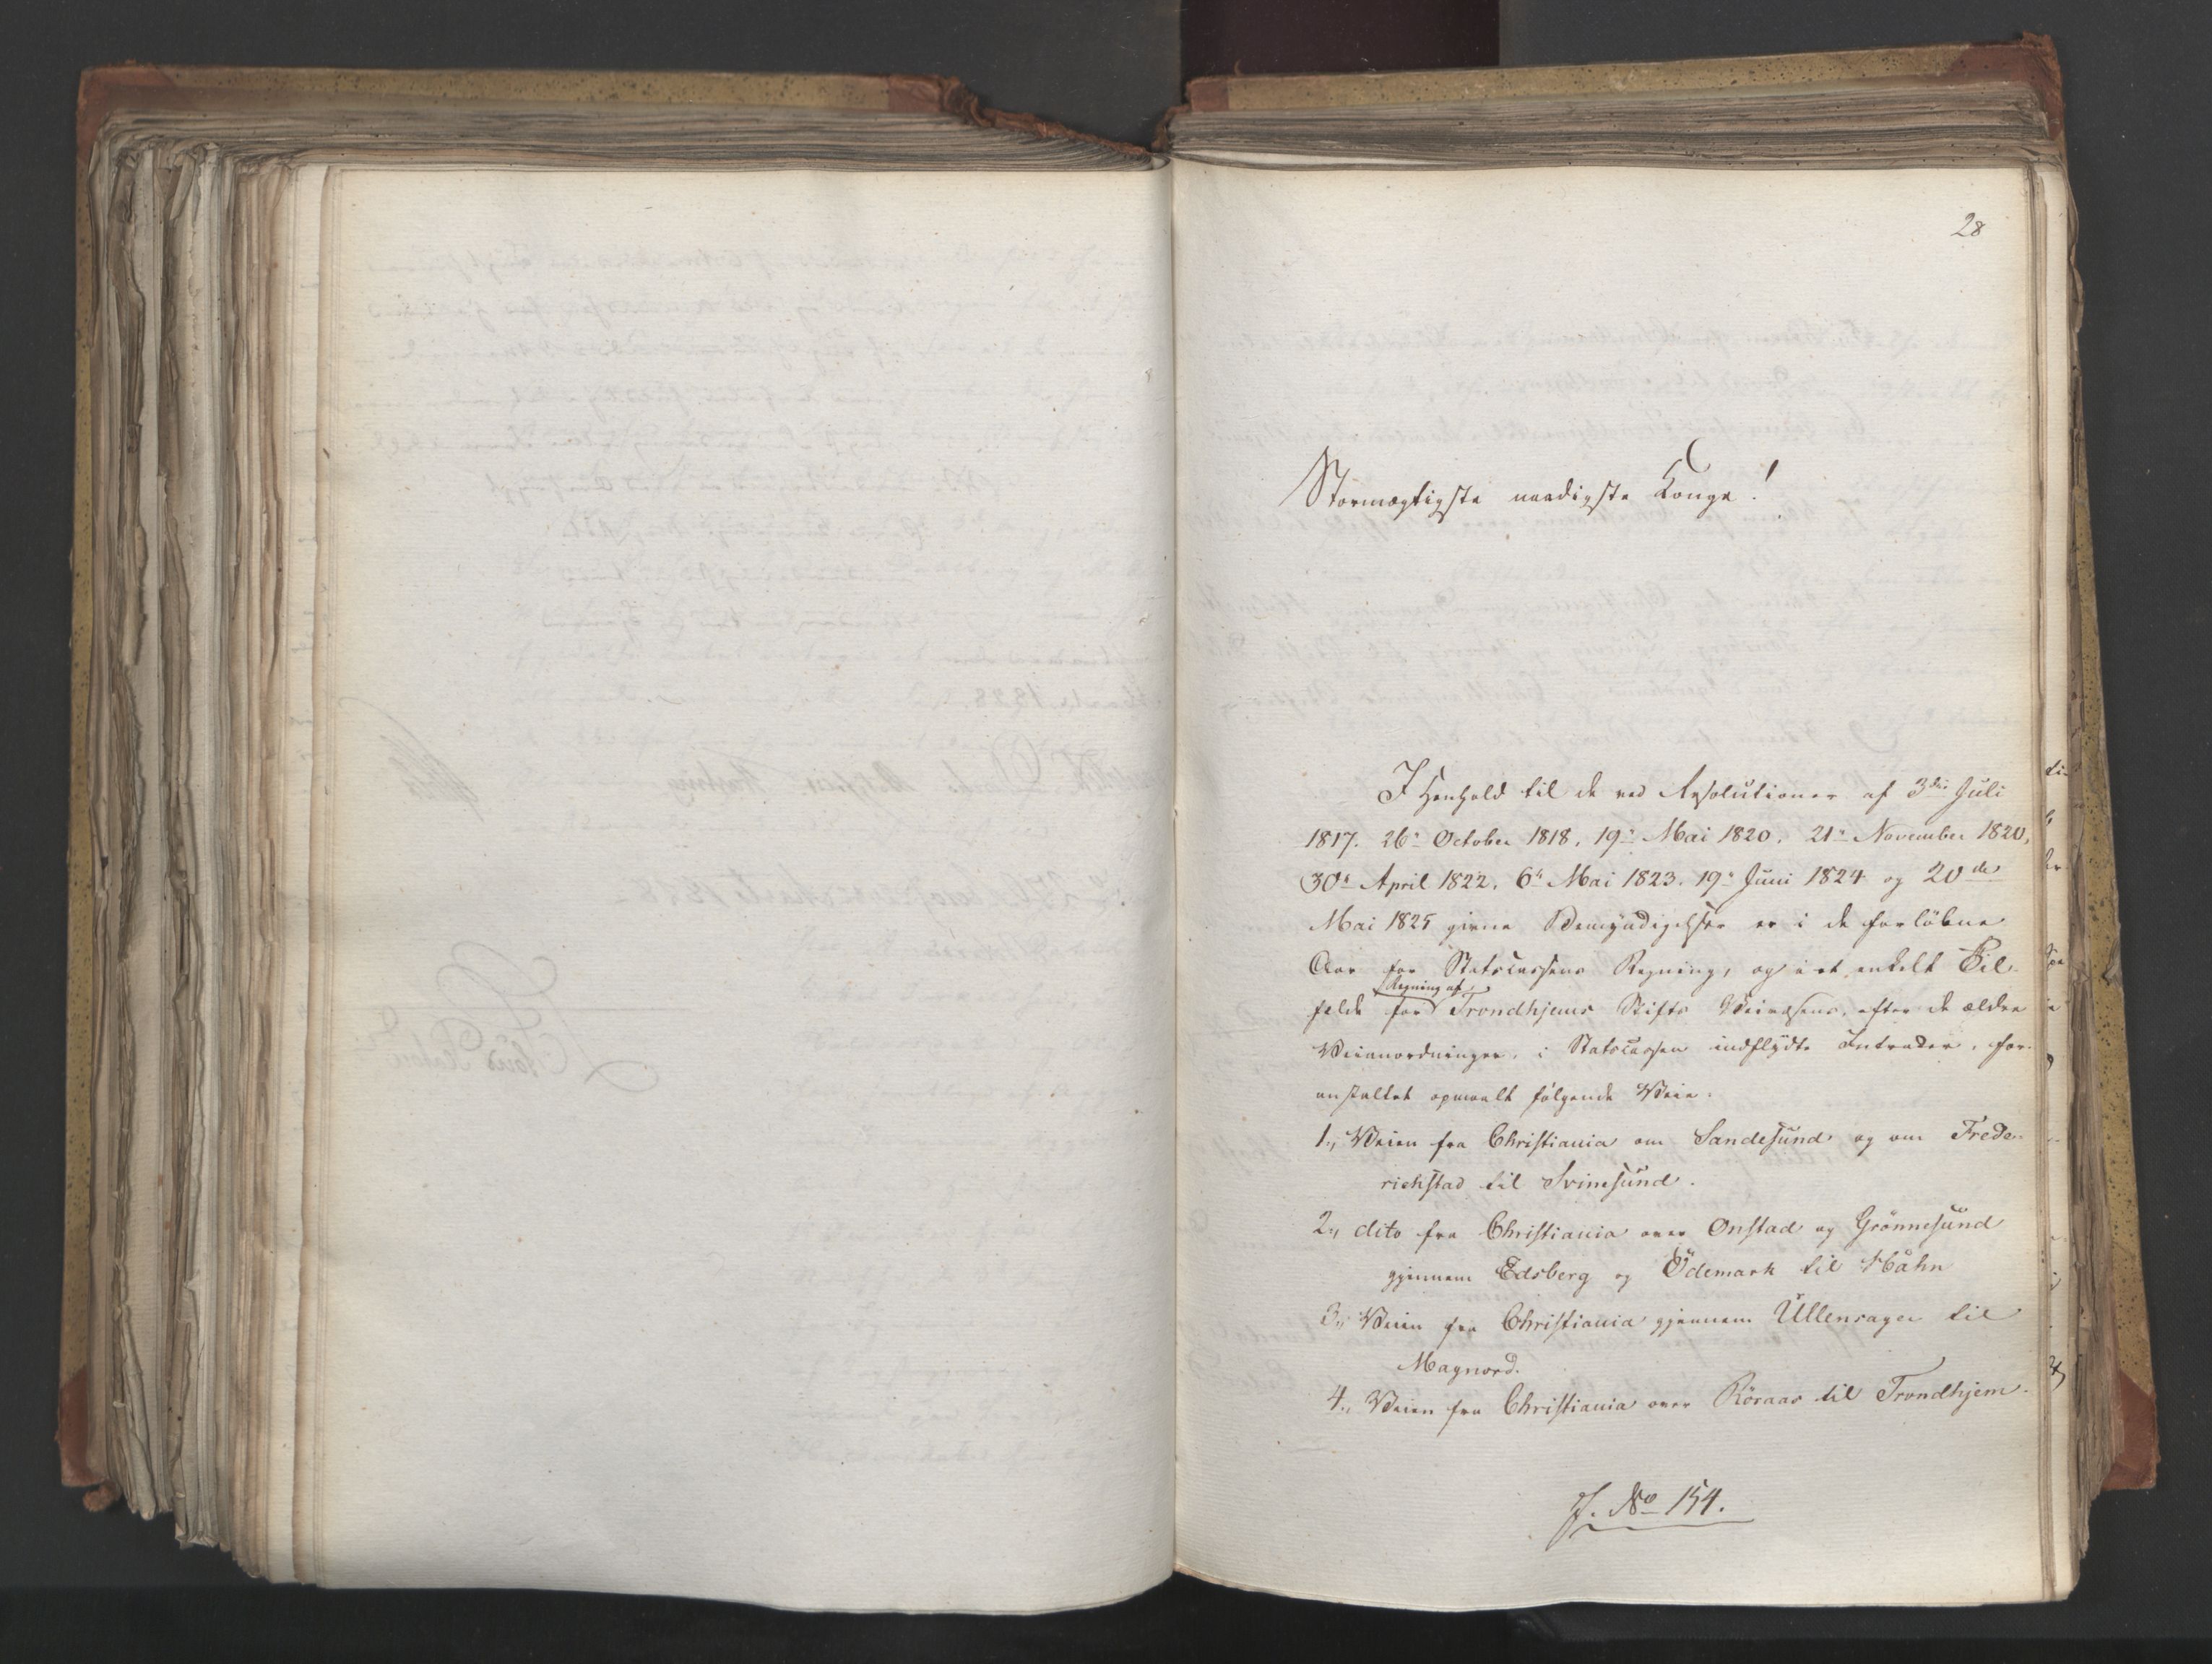 28
Stormægtigste naadigste Konge!
I Henhold til de ved Resolutioner af 3die Juli
1817. 26e October 1818. 19e Mai 1820. 21e November 1820,
30e April 1822. 6e Mai 1823. 19e Juni 1824 og 20de
Mai 1825 givne Bemyndigelser er i de forløbne
Aar for Statscassens Regning, og i et enkelt Til-
fælde for Regning af Trondhjems Stifts Veivæsens, efter de ældre
Veianordninger, i Statscassen indflydte Intrader, for-
anstaltet opmaalt følgende Veie.
1., Veien fra Christiania om Sandesund og om Frede-
richstad til Svinesund.
2., dito fra Christiania over Onstad og Grönnesund
gjennem Edsberg og Ödemark til Håhn
3., Veien fra Christiania gjennem Ullensager til
Magnord.
4., Veien fra Christiania over Röraas til Trondhjem.
J. No 154.